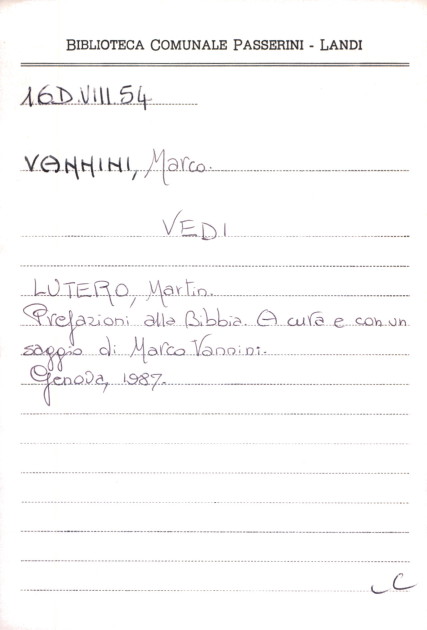 BIBLIOTECA COMUNALE PASSERINI - LANDI
16D.VIII.54
VANNINI, Marco.
VEDI
LUTERO, Martin.
Prefazioni alla Bibbia. A cura e con un
saggio di Marco Vannini.
Genova, 1987.